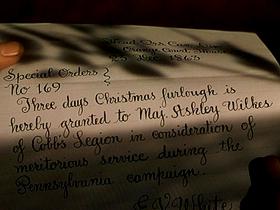 Head Qrs Camp
Orange Court House
Dec. 1863
Special Orders }
No 169
Three days Christmas furlough is
hereby granted to Maj. Ashley Wilkes
of Cobb's Legion in consideration of
meritorious service during the
Pennsylvania campaign.
E.V. White